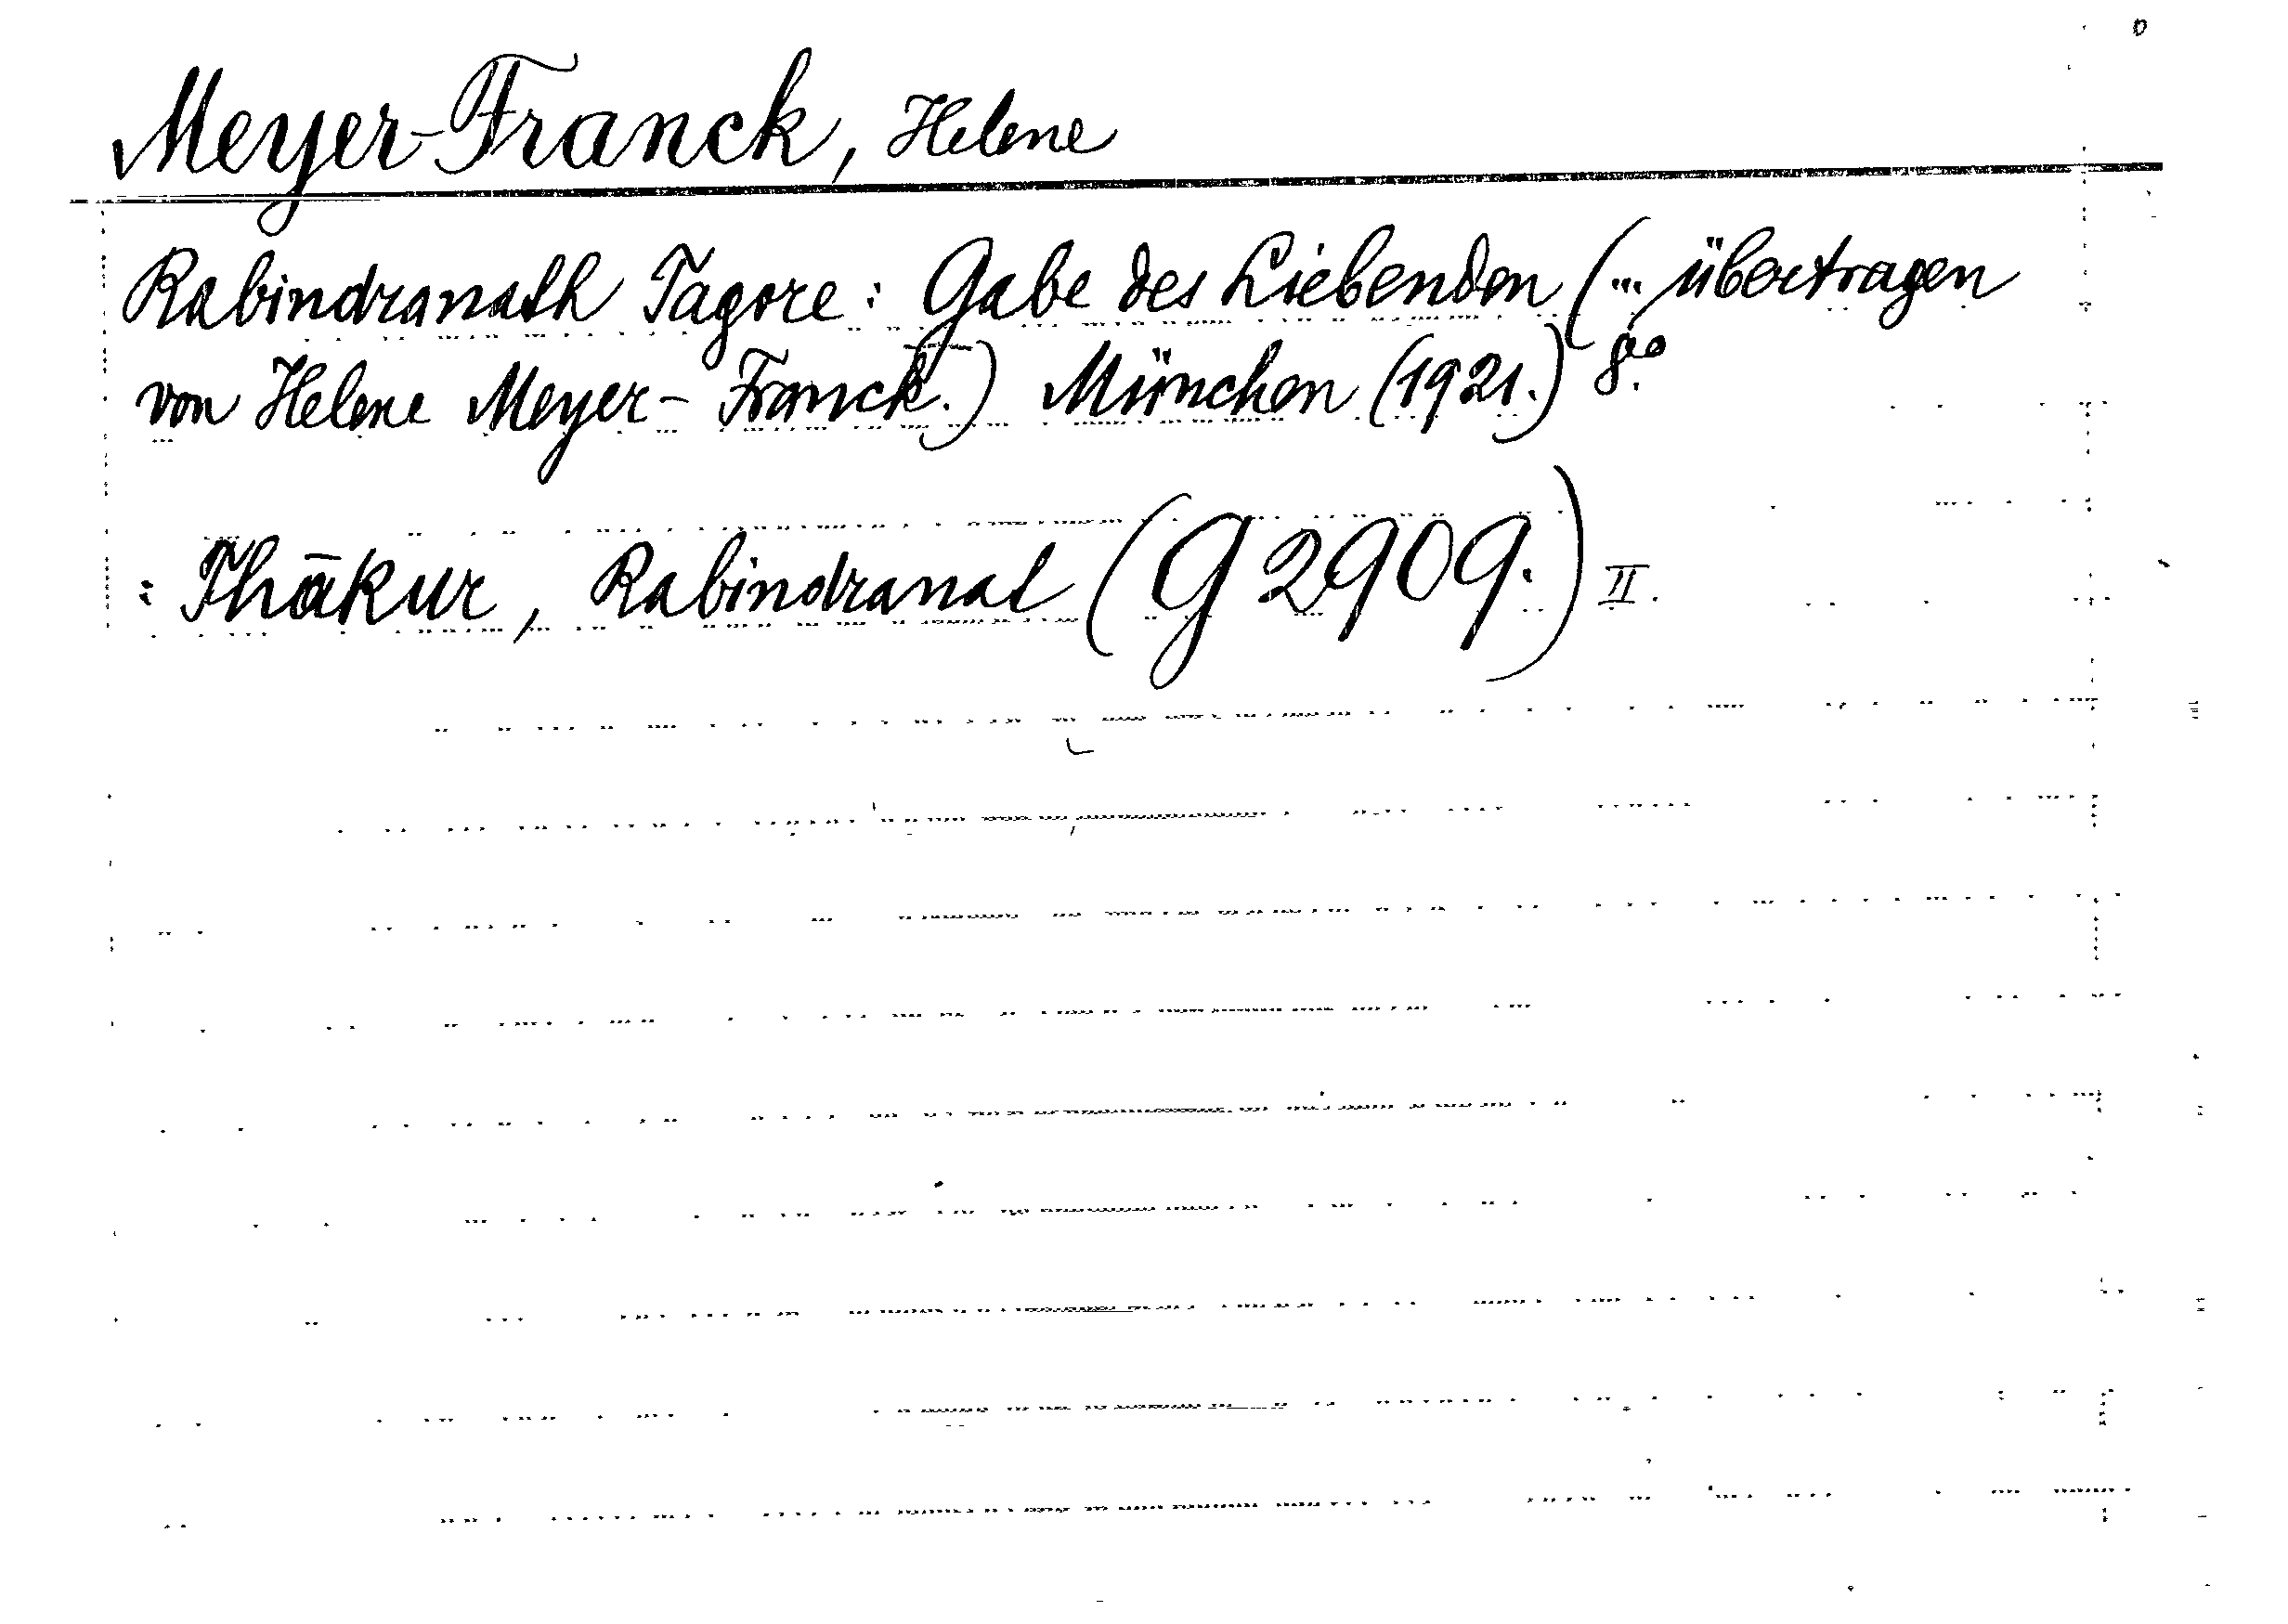 Meyer-Franck, Helene
Rabindranath Tagore: Gabe des Liebenden (... übertragen
von Helene Meyer-Franck.) München (1921.) 8.°
: Thākur, Rabindranat (G 2909.) II.